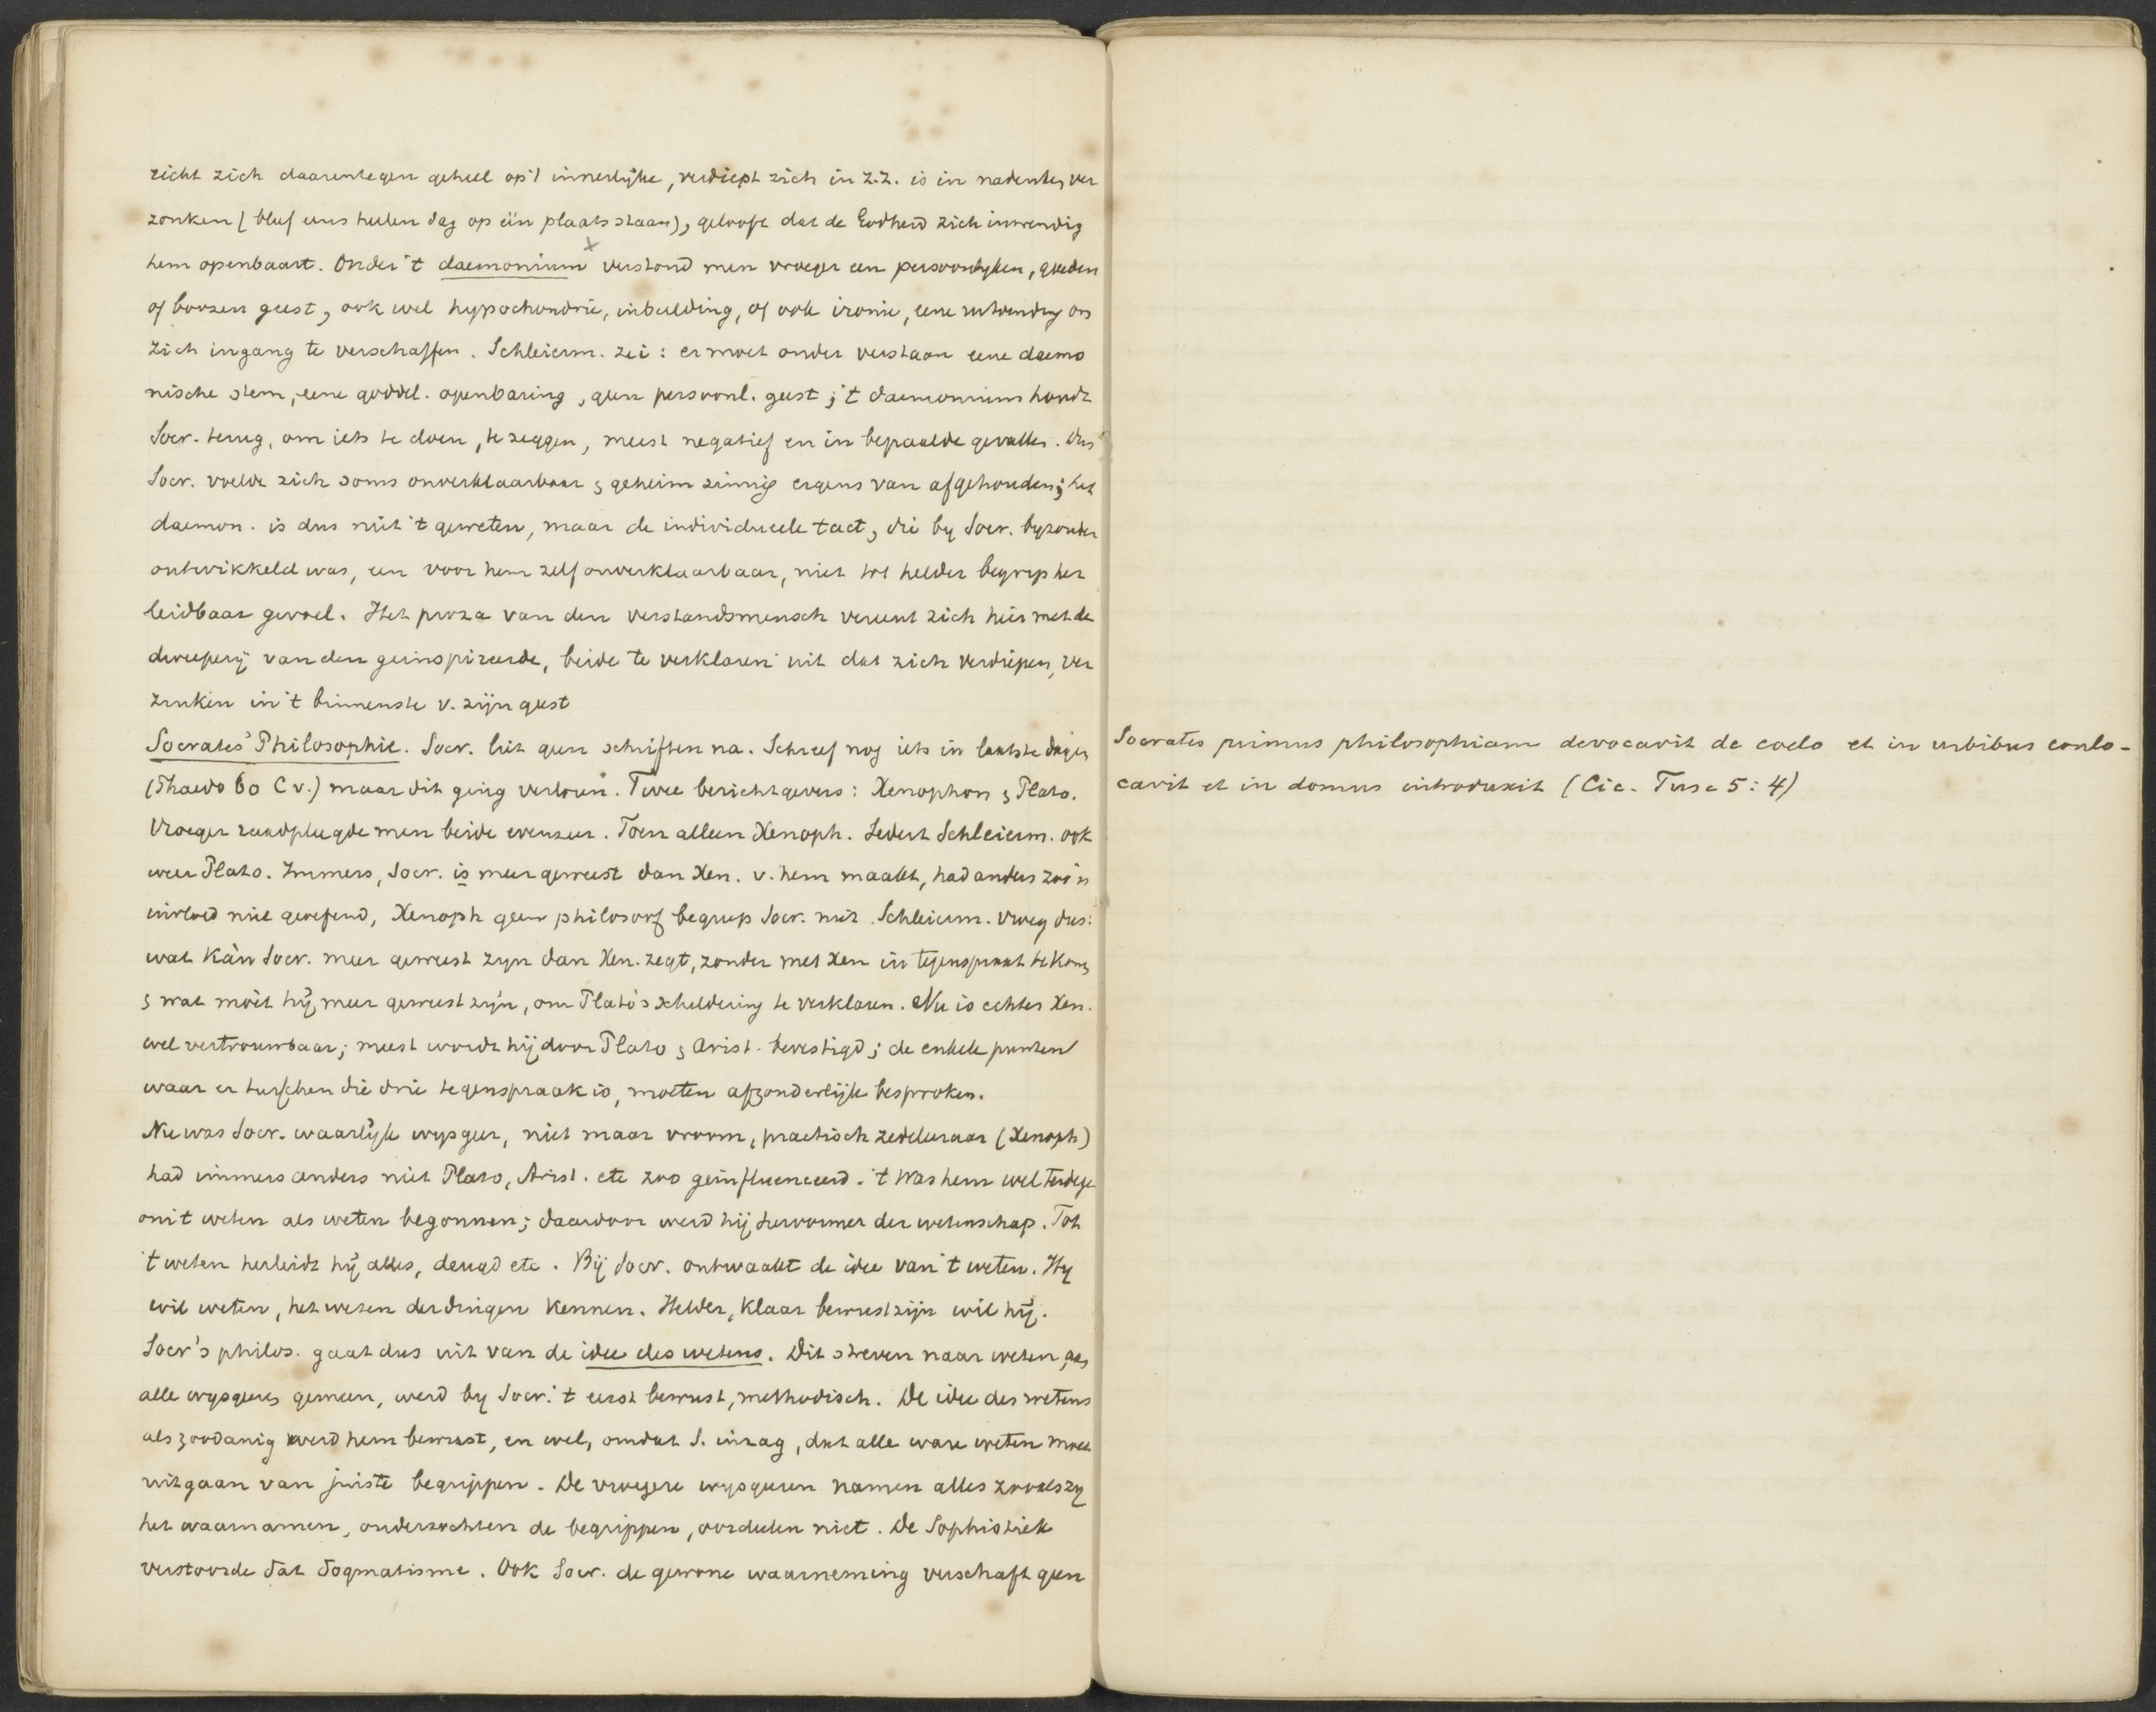 richt zich daarentegen geheel op 't innerlijke, verdiept zich in z.z. is in nadenken ver
zonken (bleef eens heelen dag op één plaats staan), gelooft dat de Godheid zich inwendig
hem openbaart. Onder 't daemonium verstond men vroeger een persoonlyken, goeden
of boozen geest, ook wel hypochondrie, inbeelding, of ook ironie, eene uitvinding om
zich ingang te verschaffen. Schleierm. zei: er moet onder verstaan eene daemo
nische stem, eene goddel. openbaring, geen persoonl. geest; 't daemonium houdt
Socr. terug, om iets te doen, te zeggen, meest negatief en in bepaalde gevallen. Dus
Socr. voelde zich soms onverklaarbaar & geheimzinnig ergens van afgehouden; het
daemon. is dus niet 't geweten, maar de individueele tact, die by Socr. byzonder
ontwikkeld was, een voor hem zelf onverklaarbaar, niet tot helder begrip her
leidbaar gevoel. Het proza van den verstandsmensch vereent zich hier met de
dweeperij van den geinspireerde, beide te verklaren uit dat zich verdiepen, ver
zinken in 't binnenste v. zijn geest
Socrates' Philosophie. Socr. liet geen schriften na. Schreef nog iets in laatste dagen
(Phaedo 60 C v.) maar dit ging verloren. Twee berichtgevers: Xenophon & Plato.
Vroeger raadpleegde men beide evenzeer. Toen alleen Xenoph. Sedert Schleierm. ook
weer Plato. Immers, Socr. is meer geweest dan Xen. v. hem maakt, had anders zoo'n
invloed niet geoefend, Xenoph geen philosoof begreep Socr. niet. Schleierm. vroeg dus:
wat kàn Socr. meer geweest zyn dan Xen. zegt, zonder met Xen in tegenspraak te komen
& wat móét hij meer geweest zijn, om Plato's schildering te verklaren. Nu is echter Xen.
wel vertrouwbaar; meest wordt hij door Plato & Arist. bevestigd; de enkele punten
waar er tusschen die drie tegenspraak is, moeten afzonderlijk besproken.
Nu was Socr. waarlijk wysgeer, niet maar vroom, practisch zedeleeraar (Xenoph)
had immers anders niet Plato, Arist. etc zoo geinfluenceerd. 't Was hem wel terdege
om 't weten als weten begonnen; daardoor werd hij hervormer der wetenschap. Tot
't weten herleidt hij alles, deugd etc. Bij Socr. ontwaakt de idee van 't weten. Hy
wil weten, het wezen der dingen kennen. Helder, klaar bewustzijn wil hij.
Socr's philos. gaat dus uit van de idee des wetens. Dit streven naar weten, aan
alle wysgeeren gemeen, werd by Socr. 't eerst bewust, methodisch. De idee des wetens
als zoodanig werd hem bewust, en wel, omdat S. inzag, dat alle ware weten moet
uitgaan van juiste begrippen. De vroegere wysgeeren namen alles zooals zy
het waarnamen, onderzochten de begrippen, oordeelen niet. De Sophistiek
verstoorde dat dogmatisme. Ook Socr. de gewone waarneming verschaft geen
Socrates primus philosophiam devocavit de coelo et in urbibus conlo-
cavit et in domus introduxit (Cic. Tusc 5: 4)